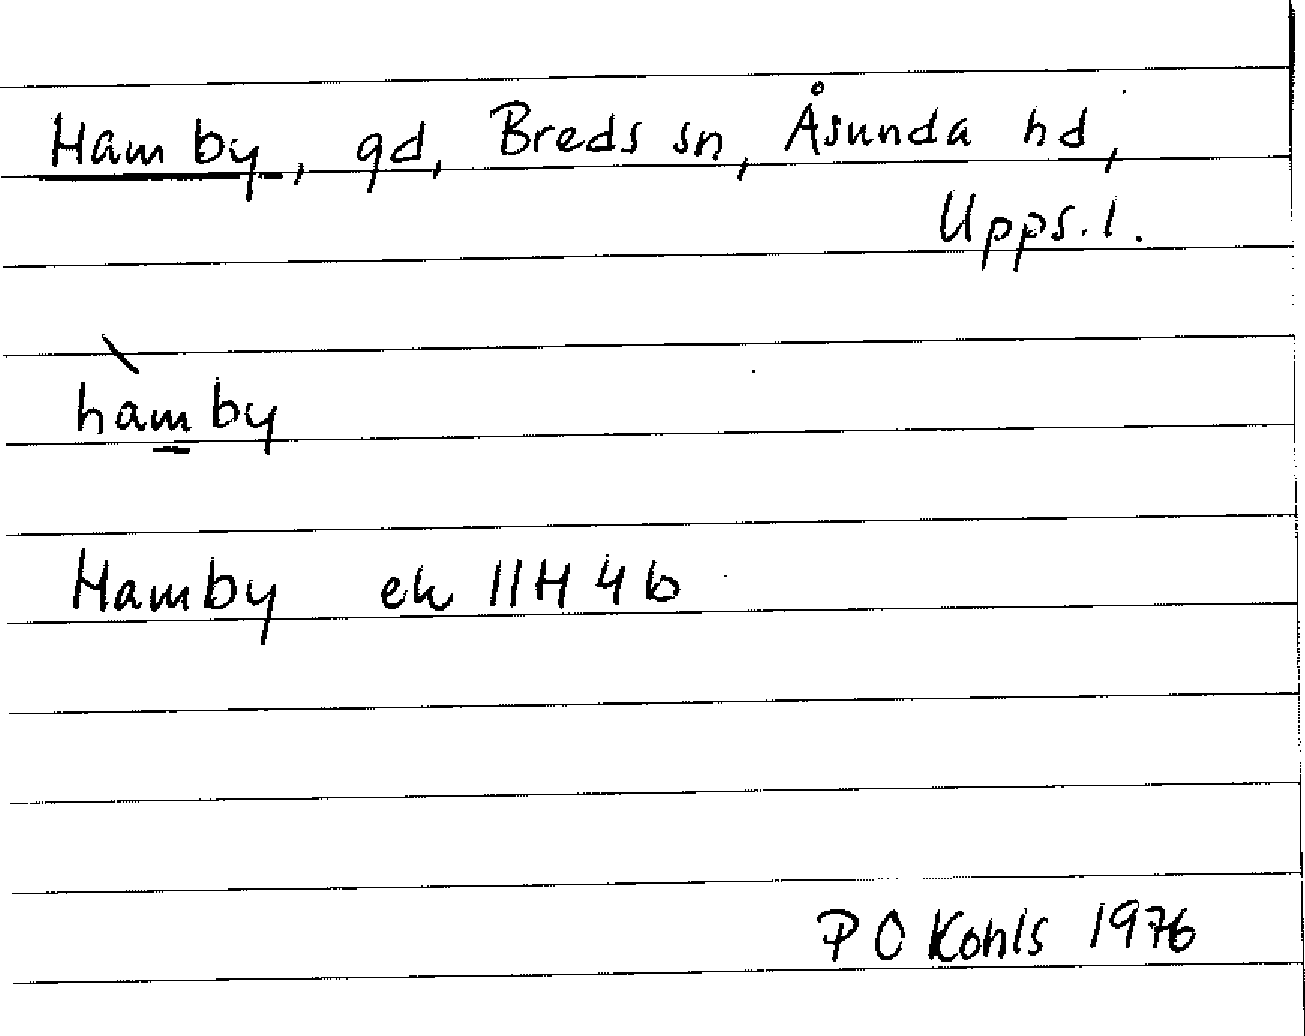 Hamby, gd, Breds sn, Åsunda hd,
Upps. l.
hàm̲by
Hamby ek 11H 4b
P O Kohls 1976